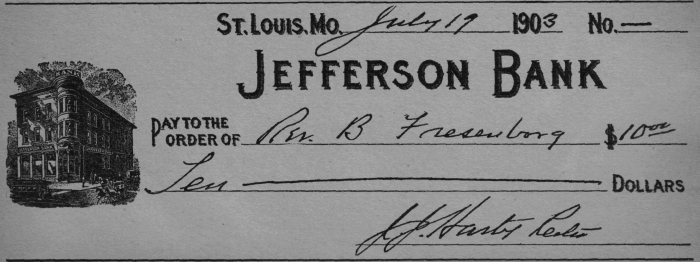 ST. LOUIS, MO. July 19 1903 No. —
JEFFERSON BANK
PAY TO THE ORDER OF Rev. B Fresenborg $10 00
Ten DOLLARS
J. J. Harty Rector